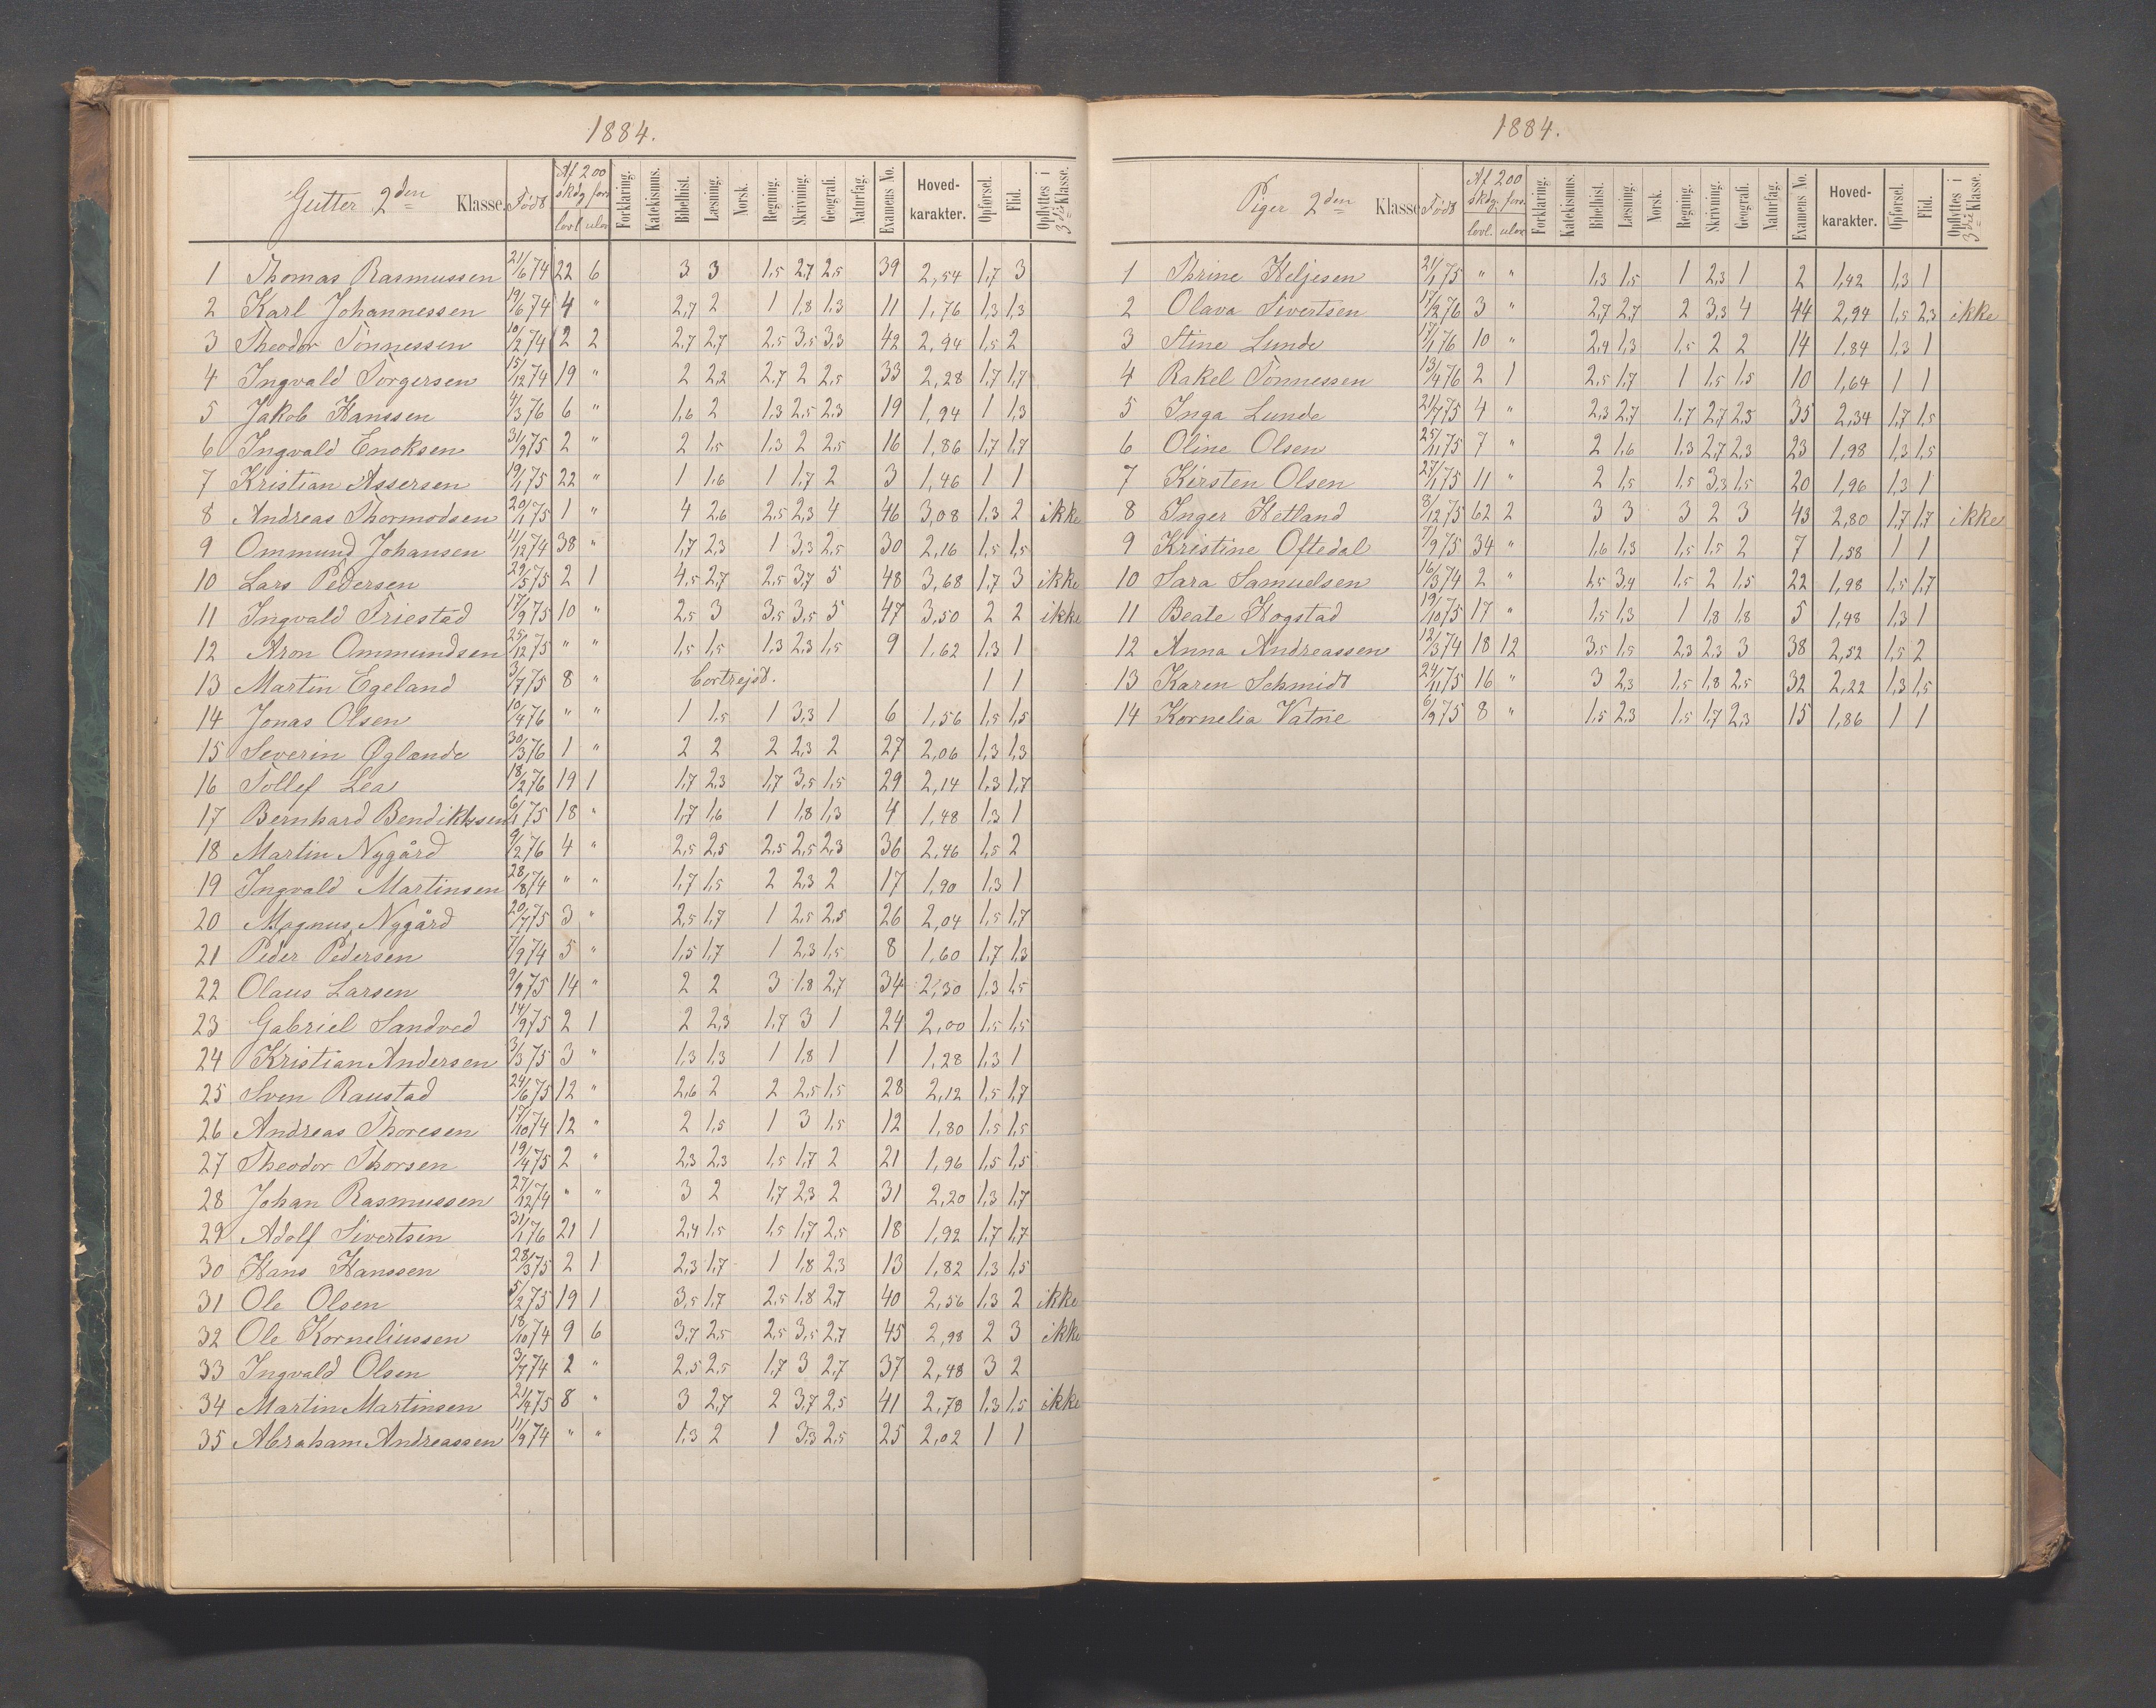 1884.
Gutter 2den Klasse. Född Af 200 skdg fors. lovl ulov Forklaring. Katekismus. Bibelhist. Læsning. Norsk. Regning. Skrivning. Geografi. Naturfag. Examens No. Hoved-karakter. Opførsel. Flid. Opflyttes i 3die Klasse.
1 Thomas Rasmussen 21/6 74 22 6 3 3 1,5 2,7 2,5 39 2,54 1,7 3
2 Karl Johannessen 19/6 74 4 " 2,7 2 1 1,8 1,3 11 1,76 1,3 1,3
3 Theodor Tönnessen 10/2 74 2 2 2,7 2,7 2,5 3,5 3,3 42 2,94 1,5 2
4 Ingvald Torgersen 15/12 74 19 " 2 2,2 2,7 2 2,5 33 2,28 1,7 1,7
5 Jakob Hanssen 4/3 76 6 " 1,6 2 1,3 2,5 2,3 19 1,94 1 1,3
6 Ingvald Enoksen 31/9 75 2 " 2 1,5 1,3 2 2,5 16 1,86 1,7 1,7
7 Kristian Assersen 19/1 75 22 " 1 1,6 1 1,7 2 3 1,46 1 1
8 Andreas Thormodsen 20/1 75 1 " 4 2,6 2,5 2,3 4 46 3,08 1,3 2 ikke
9 Ommund Johansen 11/12 74 38 " 1,7 2,3 1 3,3 2,5 30 2,16 1,5 1,5
10 Lars Pedersen 29/5 75 2 1 4,5 2,7 2,5 3,7 5 48 3,68 1,7 3 ikke
11 Ingvald Friestad 17/9 75 10 " 2,5 3 3,5 3,5 5 47 3,50 2 2 ikke
12 Aron Ommundsen 25/12 75 " " 1,5 1,5 1,3 2,3 1,5 9 1,62 1,3 1
13 Martin Egeland 3/7 75 8 " bortrejst. 1 1
14 Jonas Olsen 10/4 76 " " 1 1,5 1 3,3 1 6 1,56 1,5 1,5
15 Severin Øglænde 30/3 76 1 " 2 2 2 2,3 2 27 2,06 1,3 1,3
16 Tollef Lea 18/2 76 19 1 1,7 2,3 1,7 3,5 1,5 29 2,14 1,3 1,7
17 Bernhard Bendiktsen 6/1 75 18 " 1,7 1,6 1 1,8 1,3 4 1,48 1,3 1
18 Martin Nygård 9/2 76 4 " 2,5 2,5 2,5 2,5 2,3 36 2,46 1,5 2
19 Ingvald Martinsen 28/8 74 " " 1,7 1,5 2 2,3 2 17 1,90 1,3 1
20 Magnus Nygård 20/7 75 3 " 2,5 1,7 1 2,5 2,5 26 2,04 1,5 1,7
21 Peder Pedersen 7/9 74 5 " 1,5 1,7 1 2,3 1,5 8 1,60 1,7 1,3
22 Olaus Larsen 9/9 75 14 " 2 2 3 1,8 2,7 34 2,30 1,3 1,5
23 Gabriel Sandved 14/9 75 2 1 2 2,3 1,7 3 1 24 2,00 1,5 1,5
24 Kristian Andersen 3/3 75 3 " 1,3 1,3 1 1,8 1 1 1,28 1,3 1
25 Sven Raustad 24/6 75 12 " 2,6 2 2 2,5 1,5 28 2,12 1,5 1,7
26 Andreas Thoresen 17/10 74 12 " 2 1,5 1 3 1,5 12 1,80 1,5 1,5
27 Theodor Thorsen 19/4 75 2 " 2,3 2,3 1,5 1,7 2 21 1,96 1,5 1,5
28 Johan Rasmussen 27/12 74 " " 3 2 1,7 2,3 2 31 2,20 1,3 1,7
29 Adolf Sivertsen 31/1 76 21 1 2,4 1,5 1,5 1,7 2,5 18 1,92 1,7 1,7
30 Hans Hanssen 28/3 75 2 1 2,3 1,7 1 1,8 2,3 13 1,82 1,3 1,5
31 Ole Olsen 5/2 75 19 1 3,5 1,7 2,5 1,8 2,7 40 2,56 1,3 2 ikke
32 Ole Korneliussen 18/10 74 9 6 3,7 2,5 2,5 3,5 2,7 45 2,98 2 3 ikke
33 Ingvald Olsen 3/7 74 2 " 2,5 2,5 1,7 3 2,7 37 2,48 3 2
34 Martin Martinsen 21/4 75 8 " 3 2,7 2 3,7 2,5 41 2,78 1,3 1,5 ikke
35 Abraham Andreassen 11/9 74 " " 1,3 2 1 3,3 2,5 25 2,02 1 1
1884.
Piger 2den Klasse Född Af 200 skdg. fors. lovl. ulov Forklaring. Katekismus. Bibelhist. Læsning. Norsk. Regning. Skrivning. Geografi. Naturfag. Examens No. Hoved-karakter. Opførsel. Flid. Opflyttes i 3die Klasse.
1 Thrine Heljesen 21/1 75 " " 1,3 1,5 1 2,3 1 2 1,42 1,3 1
2 Olava Sivertsen 17/2 76 3 " 2,7 2,7 2 3,3 4 44 2,94 1,5 2,3 ikke
3 Stine Lunde 17/1 76 10 " 2,4 1,3 1,5 2 2 14 1,84 1,3 1
4 Rakel Tönnessen 13/4 76 2 1 2,5 1,7 1 1,5 1,5 10 1,64 1 1
5 Inga Lunde 21/7 75 4 " 2,3 2,7 1,7 2,7 2,5 35 2,34 1,7 1,5
6 Oline Olsen 25/11 75 7 " 2 1,6 1,3 2,7 2,3 23 1,98 1,3 1,5
7 Kirsten Olsen 27/1 75 11 " 2 1,5 1,5 3,3 1,5 20 1,96 1,3 1
8 Inger Hetland 8/12 75 62 2 3 3 3 2 3 43 2,80 1,7 1,7 ikke
9 Kristine Oftedal 7/9 75 34 " 1,6 1,3 1,5 1,5 2 7 1,58 1 1
10 Sara Samuelsen 16/3 74 2 " 1,5 3,4 1,5 2 1,5 22 1,98 1,5 1,7
11 Beate Hogstad 19/10 75 17 " 1,5 1,3 1 1,8 1,8 5 1,48 1,3 1
12 Anna Andreassen 12/3 74 18 12 3,5 1,5 2,3 2,3 3 38 2,52 1,5 2
13 Karen Schmidt 24/11 75 16 " 3 2,3 1,5 1,8 2,5 32 2,22 1,3 1,5
14 Kornelia Vatne 6/9 75 8 " 1,5 2,3 1,5 1,7 2,3 15 1,86 1 1